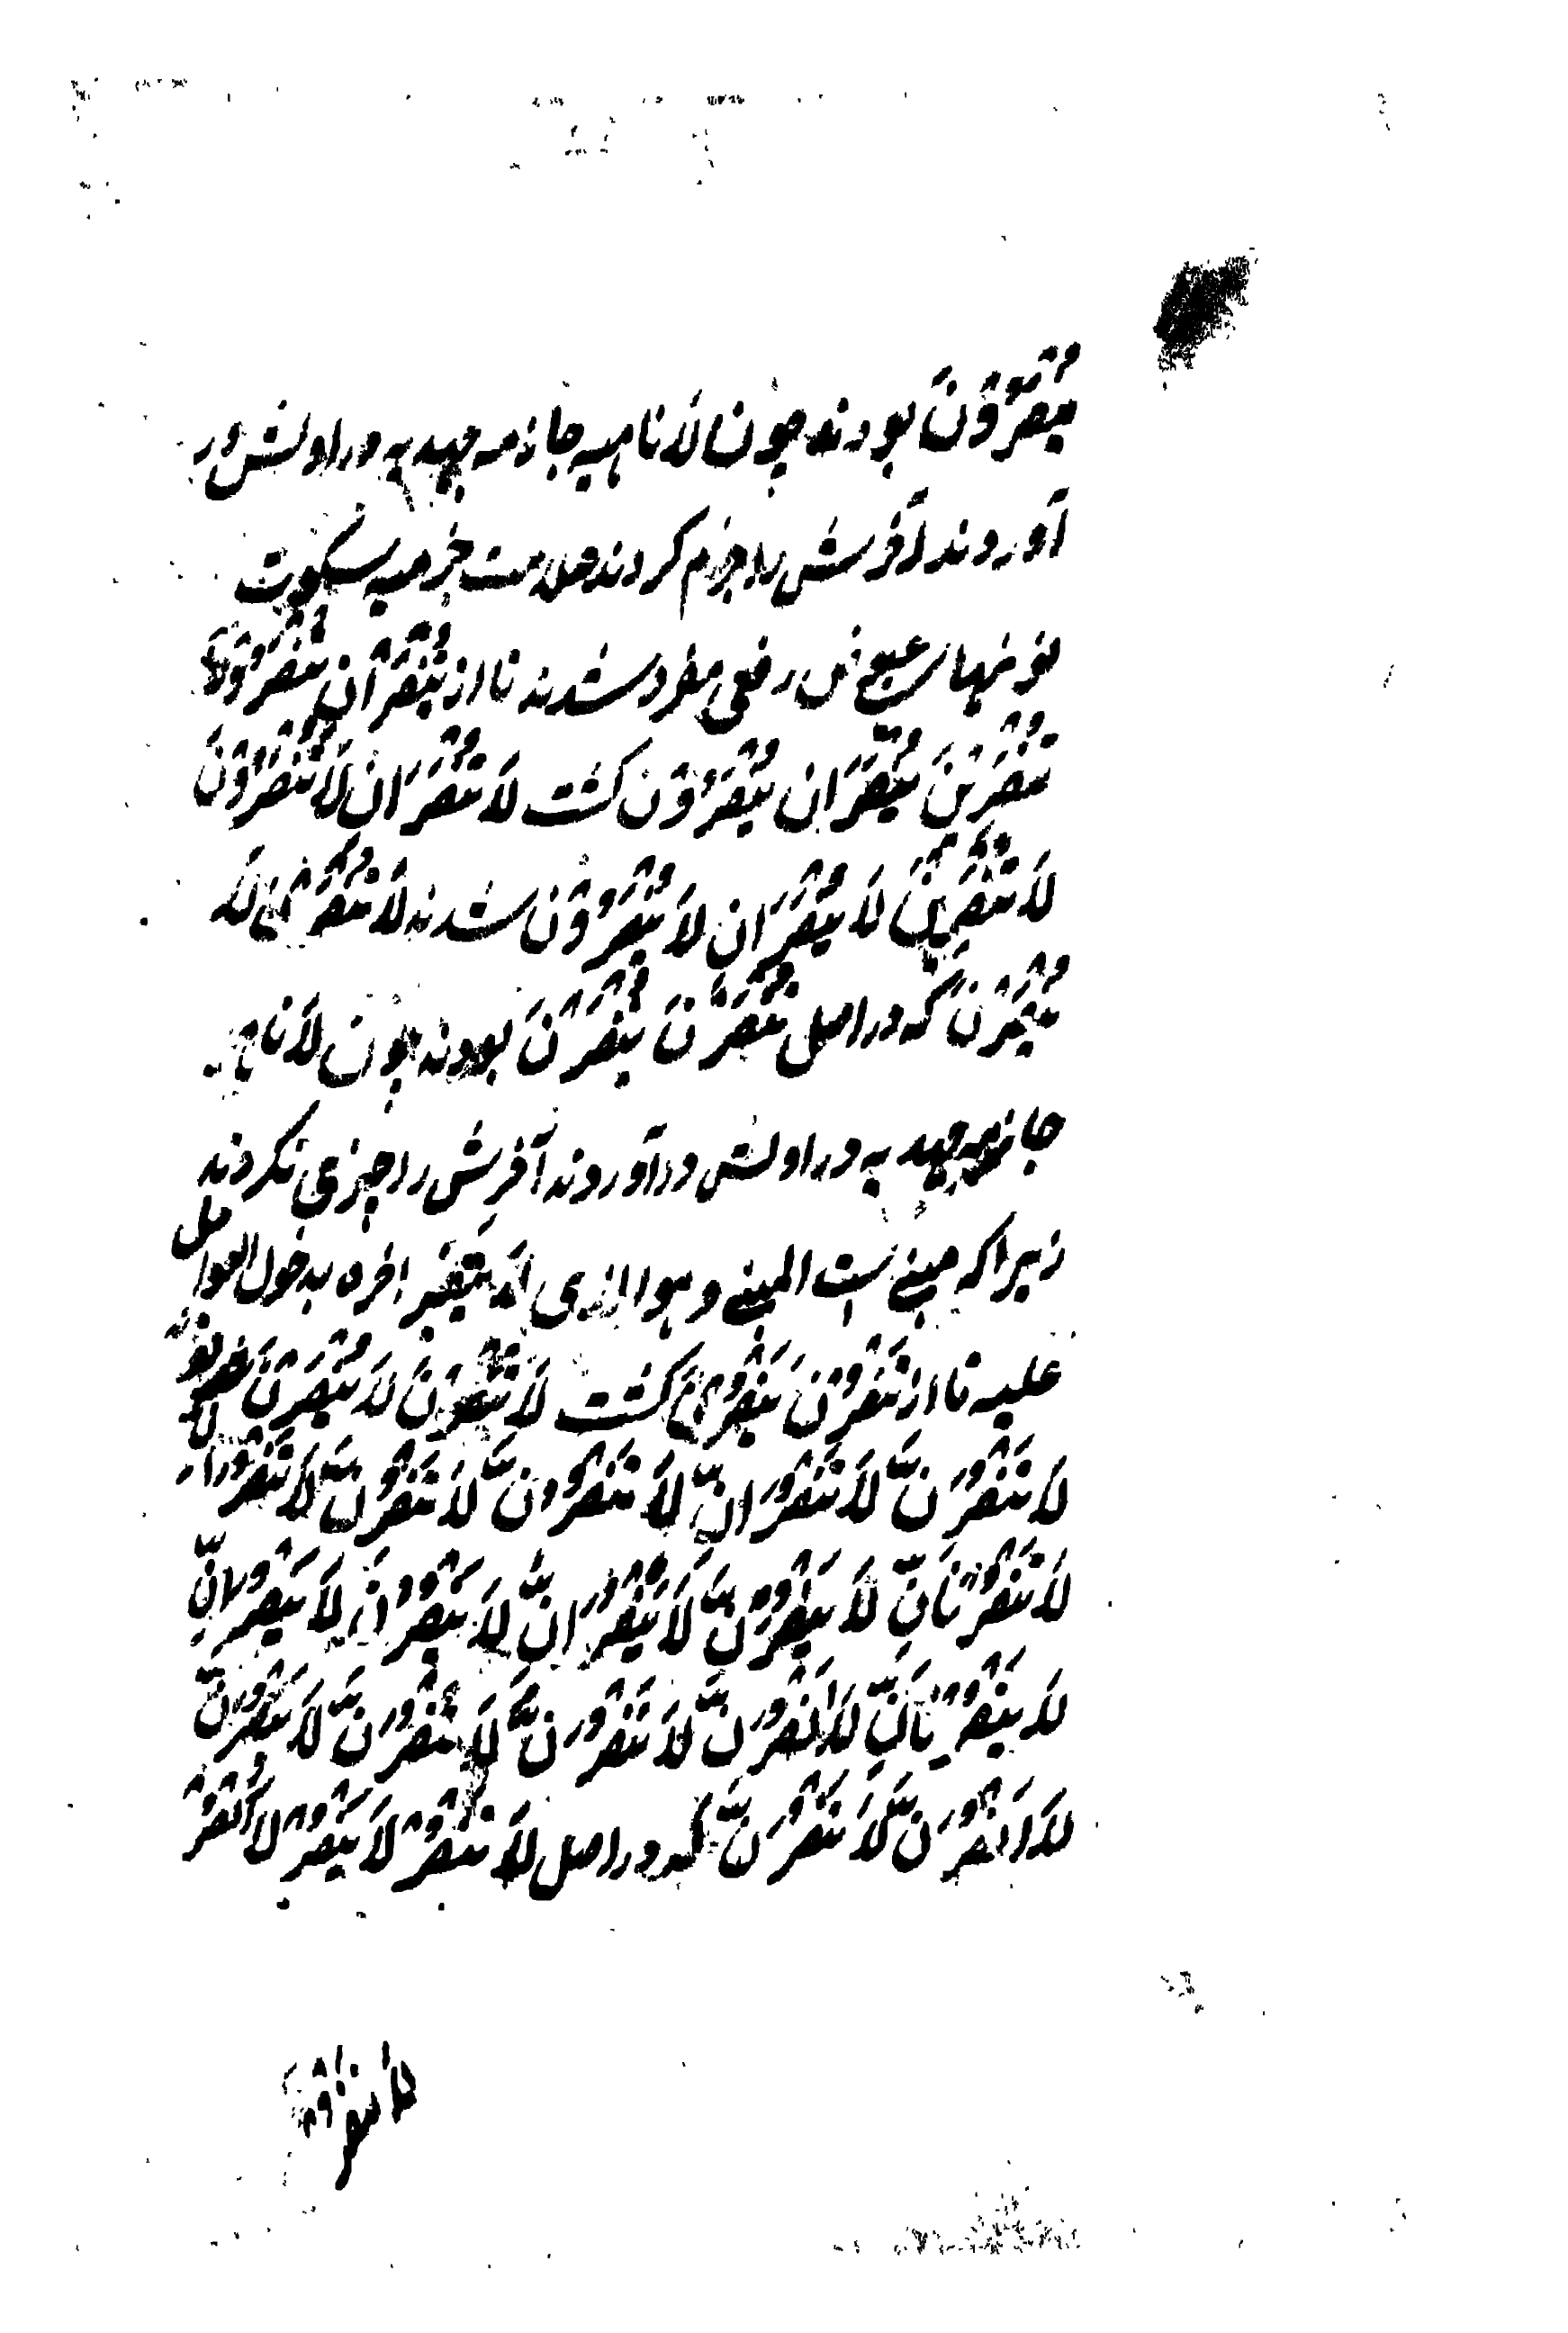 يُنْصَرُوْنَ بودند چون لا ناهیه جازمه جهدیه در اولش در
آوردند آخرش را جزم کردند علامت جزمیه سکوت
نونهای عوض رفعی مفرد شدند تا از تُنْصَرَانِ تُنْصَرُوْنَ
تُنْصَرِيْنَ يُنْصَرَانِ يُنْصَرُوْنَ گشت لَا تُنْصَرَانِ لَا تُنْصَرُوْنَ
لَا تُنْصَرِيْنَ لَا يُنْصَرَانِ لَا يُنْصَرُوْنَ شدند لَا تُنْصَرْنَ لَا
يُنْصَرْنَ که در اصل تُنْصَرْنَ يُنْصَرْنَ بودند چون لا ناهیه
جازمه جهدیه در اولش درآوردند آخرش را چیزی نکردند
زیراکه مبنی است المبنی وهو الذی لَا يتغير اخره بدخول العوامل
علیه تا از تَنْصُرْنَ يَنْصُرْنَ گشت لَا تُنْصَرْنَ لَا يُنْصَرْنَ
لَا تَنْصُرَنَّ لَا تَنْصُرَانِّ لَا تَنْصُرُونَّ لَا تَنْصُرِنَّ لَا تَنْصُرَانِّ
لَا تَنْصُرْنَانِّ لَا يَنْصُرَنَّ لَا يَنْصُرَانِّ لَا يَنْصُرُنَّ لَا يَنْصُرَانِّ
لَا يَنْصُرْنَانِّ لَا اَنْصُرَنَّ لَا نَنْصُرَنَّ لَا تَنْصُرَنَّ لَا يَنْصُرَنَّ
لَا اَنْصُرَنَّ لَا نَنْصُرَنَّ که در اصل لَا تَنْصُرْ لَا يَنْصُرْ لَا اَنْصُرْ